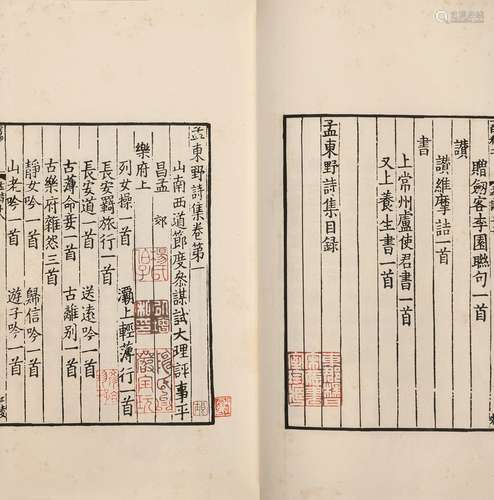 贈劒客李園聯句一首
讚
讚維摩詰一首
書
上常州盧使君書一首
又上養生書一首
孟東野詩集目録
孟東野詩集卷第一
山南西道節度參謀試大理評事平
昌孟郊
樂府上
列女操一首
灞上輕薄行一首
長安羇旅行一首
長安道一首
送遠吟一首
古薄命妾一首
古離別一首
古樂府雜怨三首
靜女吟一首
歸信吟一首
山老吟一首
遊子吟一首